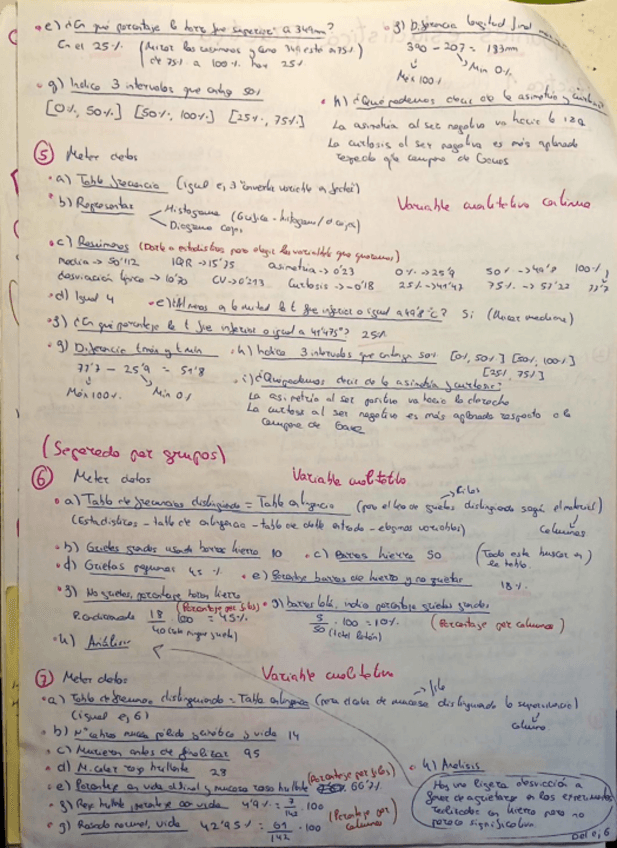 e) ¿En qué porcentaje la barra fue superior a 349mm?
En el 25%. (Mirar los resúmenes y como 349 está a 75%
de 75% a 100% hay 25%)
f) Diferencia longitud final
390 - 207 = 183mm
Máx 100% Min 0%
g) Indica 3 intervalos que 50%
[0%, 50%] [50%, 100%] [25%, 75%]
h) ¿Qué podemos decir de la asimetría y curtosis?
La asimetría al ser negativa va hacia la izq
La curtosis al ser negativa es más aplanada
respecto campana de Gauss
5 Meter datos
Variable continua
a) Tabla frecuencia (igual ej 3
b) Representar Histograma (Gráfica - histograma/d cajas)
Diagrama cajas
c) Resúmenes (Darle a estadísticos para elegir las variables que queramos)
media → 50'112 IQR → 15'75 asimetría → 0'23 0% → 25'9 50% → 49'8 100%
desviación típica → 10'70 CV → 0'213 Curtosis → -0'18 25% → 41'47 75% → 57'22 77'7
d) Igual 4 e) la mitad la t fue inferior o igual a 49'8°C? Si (Mirar mediana)
f) ¿En qué porcentaje la t fue inferior o igual a 41'475°? 25%
g) Diferencia tmáx y tmin
77'7 - 25'9 = 51'8
Máx 100% Min 0%
h) Indica 3 intervalos que 50% [0%, 50%] [50%, 100%]
[25%, 75%]
i) ¿Qué podemos decir de la asimetría y curtosis?
La asimetría al ser positiva va hacia la derecha
La curtosis al ser negativa es más aplanada respecto a la
campana de Gauss
(Separado por grupos)
6 Meter datos
Variable cualitativa
a) Tabla de frecuencias distinguiendo = Tabla contingencia (para el tipo de grietas distinguiendo según el material)
Filas
Columnas
(Estadísticos - tabla de contingencia - tabla de doble entrada - elegimos variables)
b) Grietas grandes usando barras hierro 10
c) Barras hierro 50 (Todo esto buscar en la tabla)
d) Grietas pequeñas 45%
e) Porcentaje barras de hierro y no grietas 18%
f) No grietas, porcentaje barras hierro
(Porcentaje por filas)
18/40 · 100 = 45%
g) barras latón, indica porcentaje grietas grandes
5/50 (total latón) · 100 = 10% (Porcentaje por columnas)
h) Análisis
7 Meter datos
Variable cualitativa
a) Tabla de frecuencias distinguiendo = Tabla contingencia (para color de mucosa distinguiendo la supervivencia)
fila
columna
(igual ej 6)
b) Nº mucosa pálida y vida 14
c) Murieron antes de finalizar 95
d) M. color rojo brillante 23
e) Porcentaje con vida al final y mucosa rosa brillante (Porcentaje por filas) 66'7%
f) Rojo brillante, porcentaje con vida 4'9% = 7/142 · 100
g) Rosado normal, vida 42'95% = 61/142 · 100 (Porcentaje por columnas)
h) Análisis
Hay una ligera desviación a
favor de agrietarse en los experimentos
realizados en hierro pero no
parece significativa
Del ej 6